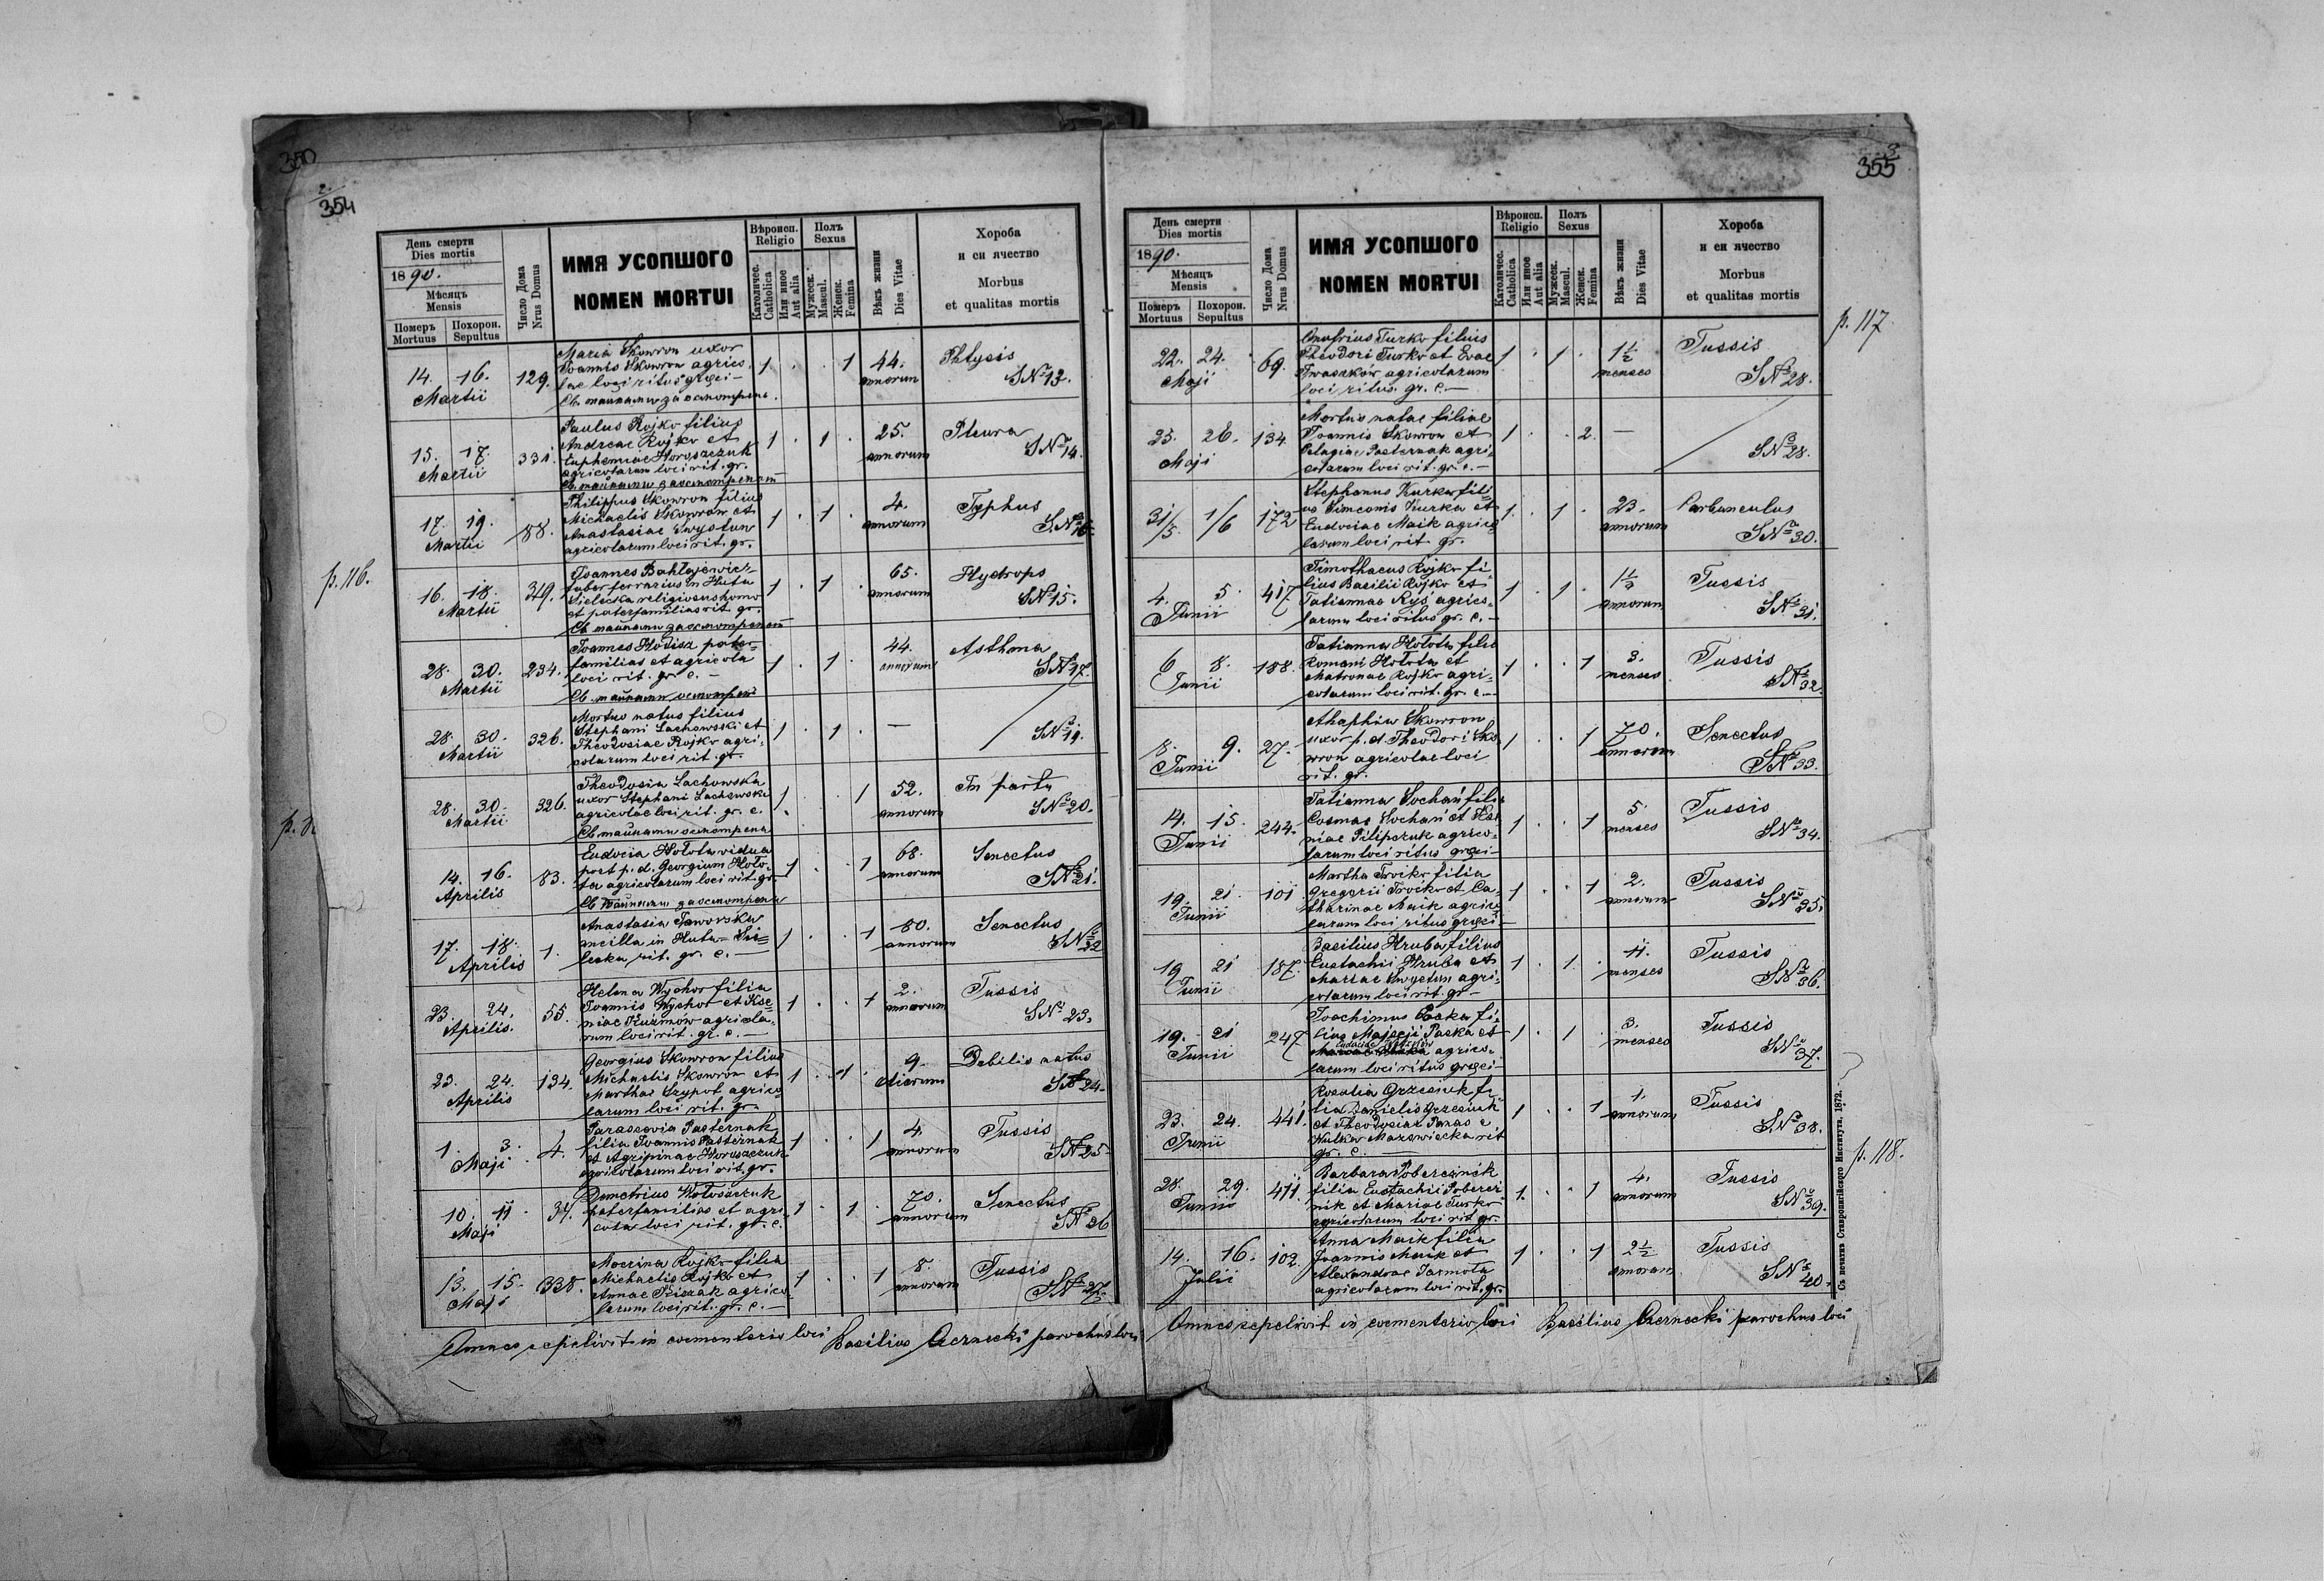 350
2.
354
День смерти
Dies mortis
1890.
Мѣсяцъ
Mensis
Померъ
Mortuus
Похорон.
Sepultus
Число Дома
Nrus Domus
ИМЯ УСОПШОГО
NOMEN MORTUI
Вѣроисп.
Religio
Католичес.
Catholica
Или иное
Aut alia
Полъ
Sexus
Мужеск.
Mascul.
Женск.
Femina
Вѣкъ жизни
Dies Vitae
Хороба
и си ячество
Morbus
et qualitas mortis
14. 16. Martii 129.
Maria Skowron uxor
Joannis Skowron agrico-
lae loci ritus graeci
1 . . 1 44. annorum Phtysis
SN 13.
15. 17. Martii 331.
Paulus Rojko filius
Andreae Rojko et
Euphemiae Horoszczuk
agricolarum loci rit. gr.
1 . 1 . 25. annorum Pleura
SN 14.
17. 19. Martii 88.
Philippus Skowron filius
Michaelis Skowron et
Anastasiae
agricolarum loci rit. gr.
1 . 1 . 4. annorum Typhus
p. 116.
16. 18. Martii 349.
Joannes
faber ferrarius in Huta
Sielecka religiosus homo
et paterfamilias rit. gr.
1 . 1 . 65. annorum Hydrops
SN 15.
28. 30. Martii 234.
Joannes pater-
familias et agricola
loci rit. gr. c. —
1 . 1 . 44. annorum Asthma
SN 17.
28. 30. Martii 326.
Mortuo natus filius
Stephani Lachowski et
Theodosiae Rojko agri-
colarum loci rit. gr.
1 . 1 . —
SN 19.
28. 30. Martii 326.
Theodosia Lachowska
uxor Stephani Lachowski
agricolae loci rit. gr. c.
1 . . 1 52. annorum In partu
SN 20.
14. 16. Aprilis 83.
Eudocia Hołota vidua
post p. d. Georgium Hoło-
ta agricolarum loci rit. gr.
1 . . 1 68. annorum Senectus
SN 21.
17. 18. Aprilis 1.
Anastasia Jaworska
ancilla in Huta - Sie=
lecka rit. gr. c. —
1 . . 1 80. annorum Senectus
SN 22
23. 24. Aprilis. 55.
Helena Wychor filia
Joannis Wychor et Kse=
niae Kuzmow agricola-
rum loci rit. gr. c. —
1 . . 1 2. annorum Tussis
SN 23.
23. 24. Aprilis 134.
Georgius Skowron filius
Michaelis Skowron et
Marthae agrico=
larum loci rit. gr.
1 . 1 . 9. dierum Debilis natus
SN 24.
1. 3. Maji 4.
Parascevia Pasternak
filia Joannis Pasternak
et Agripinae Horoszczuk
agricolarum loci rit. gr.
1 . . 1 4. annorum Tussis
SN 25
10. 11. Maji 34.
Demetrius Wołoszczuk
paterfamilias et agri-
cola loci rit. gr. c.
1 . 1 . 70. annorum Senectus
SN 26
13. 15. Maji 338.
Macrina Rojko filia
Michaelis Rojko et
Annae agrico-
larum loci rit. gr. c. —
1 . . 1 8. annorum Tussis
SN 27
Omnes sepelivit in coementerio loci Basilius Czernecki parochus loci
3
355
День смерти
Dies mortis
1890.
Мѣсяцъ
Mensis
Померъ
Mortuus
Похорон.
Sepultus
Число Дома
Nrus Domus
ИМЯ УСОПШОГО
NOMEN MORTUI
Вѣроисп.
Religio
Католичес.
Catholica
Или иное
Aut alia
Полъ
Sexus
Мужеск.
Mascul.
Женск.
Femina
Вѣкъ жизни
Dies Vitae
Хороба
и си ячество
Morbus
et qualitas mortis
p. 117
22. 24. Maji 69.
Onufrius Turko filius
Theodori Turko et Evae
Iwaszków agricolarum
loci ritus. gr. c. —
1 . 1 . 1½ menses Tussis
SN 28.
25. 26. Maji 134
Mortuo natae filiae
Joannis Skowron et
Pelagiae Pasternak agri-
colarum loci rit. gr. c. —
1 . . 2. —
SN 28.
31/5. 1/6 172
Stephanus Kurka fili=
us Simeonis Kurka et
Eudociae Maik agrico
larum loci rit. gr.
1 . 1 . 23. annorum Carbunculus
SN 30.
4. 5. Junii 417
Timothaeus Rojko fi
lius Basilii Rojko et
Tatiannae Ryś agrico-
larum loci ritus gr. c. —
1 . 1 . 1½ annorum Tussis
SN 31.
6 8. Junii 188.
Tatianna Hołota filia
Romani Hołota et
Matronae Rojko agri-
colarum loci rit. gr. c. —
1 . . 1 3. menses Tussis
SN 32.
8. 9. Junii 27.
Ahaphia Skowron
uxor p. d. Theodori Sko
wron agricolae loci
rit. gr.
1 . . 1 70. annorum Senectus
SN 33.
14. 15. Junii 244.
Tatianna Sochań filia
Cosmae Sochań et Kse
niae Pilipczuk agrico-
larum loci ritus graeci
1 . . 1 5. menses Tussis
SN 34.
19. 21. Junii 101
Martha Troiko filia
Gregorii Troiko et Ca-
tharinae Maik agrico
larum loci ritus graeci
1 . . 1 2. annorum Tussis
SN 35.
19 21 Junii 187.
Basilius Hruba filius
Eustachii Hruba et
Mariae agri-
colarum loci rit. gr —
1 . 1. . 4. menses Tussis
SN 36.
19. 21 Junii 247
Joachimus Paska fi-
lius Paska et
agrico-
larum loci ritus graeci
1 . 1 . 3. menses Tussis
SN 37.
23. 24. Junii 441
Rosalia Grzesiuk fi
lia Danielis Grzesiuk
et Theodosiae Panas e
Wulka Mazowiecka rit
gr. c.
1 . . 1 1. annorum Tussis
SN 38.
p. 118.
28. 29. Junii 411.
Barbara Pobereżnik
filia Eustachii Pobereż
nik et Mariae Turko
agricolarum loci rit gr.
1. . . 1 4. annorum Tussis
SN 39.
14. 16. Julii 102.
Anna Maik filia
Joannis Maik et
Alexandrae Jacmota
agricolarum loci rit. gr.
1 . . 1 2½ annorum Tussis
SN 40.
Съ печатнѣ Ставропигійского Института, 1872.
Omnes sepelivit in coementerio loci Basilius Czernecki parochus loci